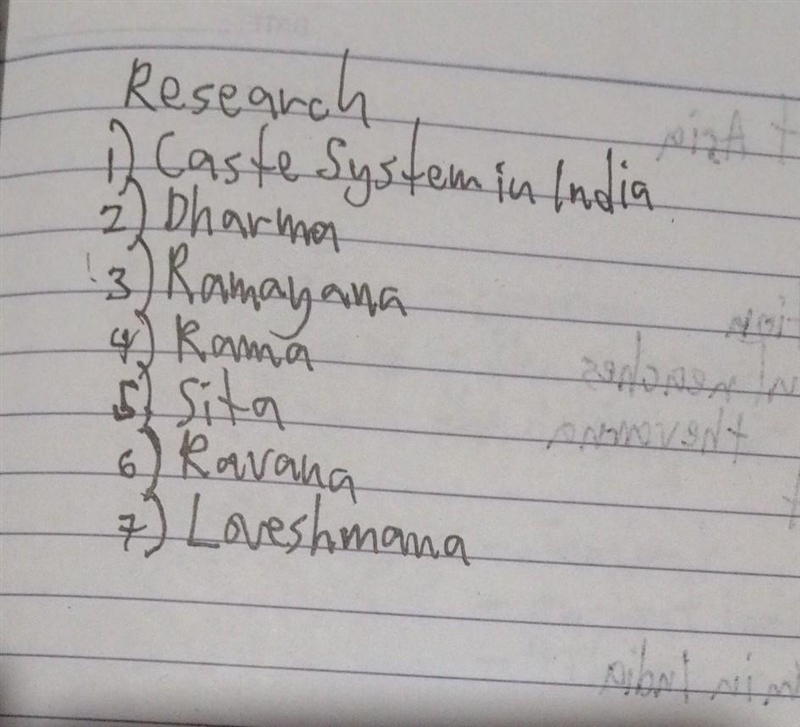 Research
1) Caste System in India
2) Dharma
3) Ramayana
4) Rama
5) Sita
6) Ravana
7) Laveshmana